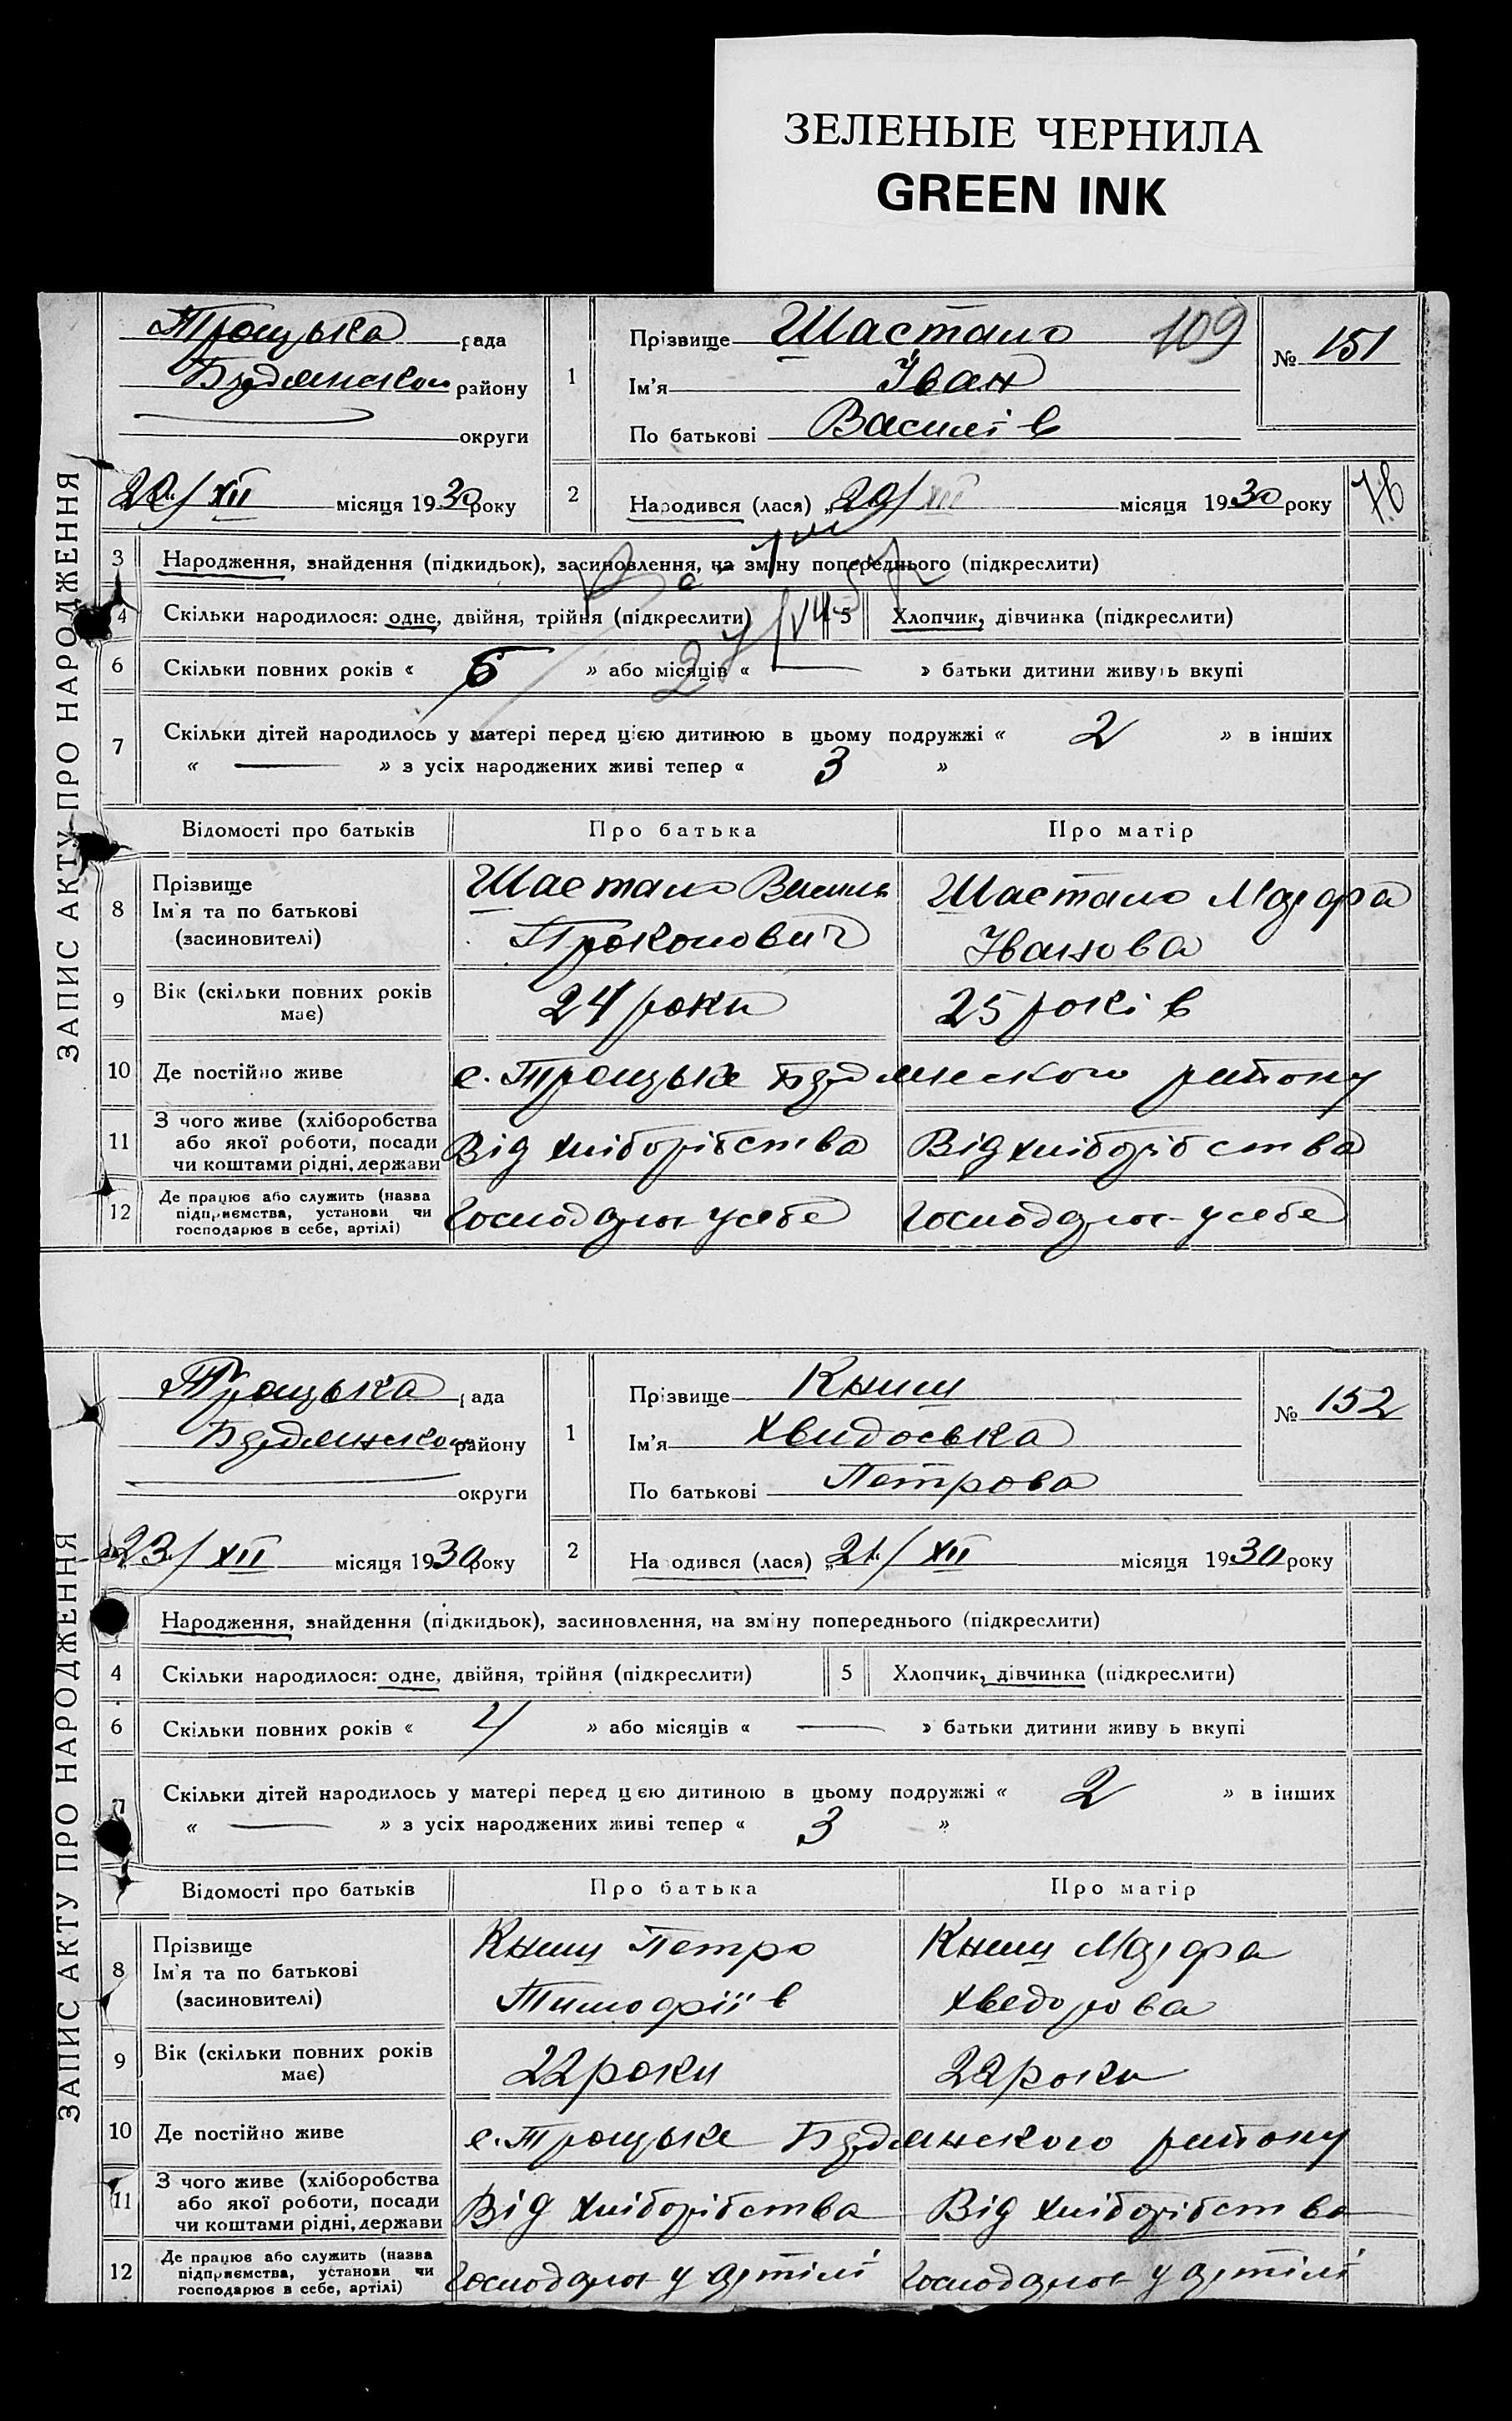 ЗЕЛЕНЫЕ ЧЕРНИЛА
GREEN INK
ЗАПИС АКТУ ПРО НАРОДЖЕННЯ
Троцька рада
району
округи
20/XII місяця 1930 року
1
Прізвище Шастало 109
Ім'я Іван
По батькові Василів
№ 151
2
Народився (лася) „20/XII місяця 1930 року
3 Народження, знайдення (підкидьок), засиновлення, на зміну попереднього (підкреслити)
4 Скільки народилося: одне, двійня, трійня (підкреслити) 5 Хлопчик, дівчинка (підкреслити)
6 Скільки повних років « 5 » або місяців « — » батьки дитини живуть вкупі
7 Скільки дітей народилось у матері перед цією дитиною в цьому подружжі « 2 » в інших
« — » з усіх народжених живі тепер « 3 »
Відомості про батьків Про батька Про матір
8 Прізвище
Ім'я та по батькові
(засиновителі)
Шастало Василь
Прокопович
Шастало Марфа
Іванова
9 Вік (скільки повних років
має)
24 роки 25 років
10 Де постійно живе с. Троцьке району
11 З чого живе (хліборобства
або якої роботи, посади
чи коштами рідні, держави
Від хліборібства Від хліборібства
12 Де працює або служить (назва
підприємства, установи чи
господарює в себе, артілі)
Господарює у себе Господарює у себе
ЗАПИС АКТУ ПРО НАРОДЖЕННЯ
Троцька рада
району
округи
23/XII місяця 1930 року
1
Прізвище Книш
Ім'я Хвидоська
По батькові Петрова
№ 152
2
Народився (лася) „21/XII місяця 1930 року
Народження, знайдення (підкидьок), засиновлення, на зміну попереднього (підкреслити)
4 Скільки народилося: одне, двійня, трійня (підкреслити) 5 Хлопчик, дівчинка (підкреслити)
6 Скільки повних років « 4 » або місяців « — » батьки дитини живу ь вкупі
7 Скільки дітей народилось у матері перед цією дитиною в цьому подружжі « 2 » в інших
« — » з усіх народжених живі тепер « 3 »
Відомості про батьків Про батька Про матір
8 Прізвище
Ім'я та по батькові
(засиновителі)
Книш Петро
Тимофіїв
Книш Марфа
Хведорова
9 Вік (скільки повних років
має)
22 роки 22 роки
10 Де постійно живе с. Троцьке району
11 З чого живе (хліборобства
або якої роботи, посади
чи коштами рідні, держави
Від хліборібства Від хліборібства
12 Де працює або служить (назва
підприємства, установи чи
господарює в себе, артілі)
Господарює у артілі Господарює у артілі